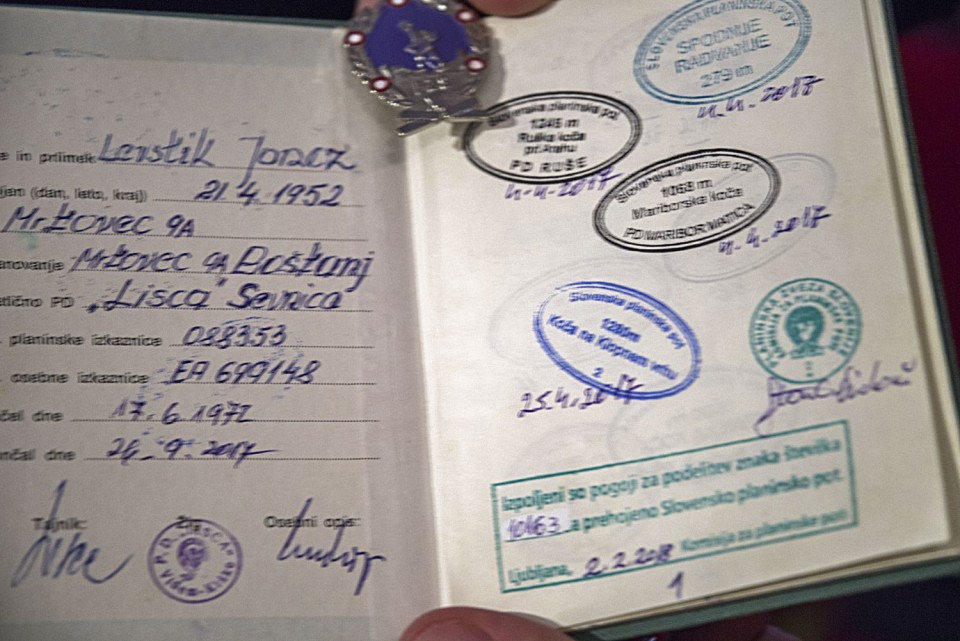 e in priimek Levstik
jen (dan, leto, kraj) 21. 4. 1952
Mrtovec 9A
anovanje Mrtovec 9A Boštanj
atično PD "Lisca" Sevnica
planinske izkaznice 088353
osebne izkaznice EA 699148
čal dne 17. 6. 1972
nčal dne 9. 2017
Tajnik:
Osebni opis:
P.D. LISCA
SLOVENSKA PLANINSKA POT
SPODNJE
RADVANJE
279 m
4. 2017
Slovenska planinska pot
1246 m
Ruška koča
pri Arehu
PD RUŠE
4. 2017
Slovenska planinska pot
1068 m
Mariborska koča
PD MARIBOR MATICA
4. 2017
Slovenska planinska pot
1280m
Koča na Klopnem vrhu
2
25. 4. 2017
PLANINSKA ZVEZA SLOVENIJE
Izpoljeni so pogoji za podelitev znaka številka
10163 a prehojeno Slovensko planinsko pot.
Ljubljana, 2. 2. 2018 Komisija za planinske poti
1